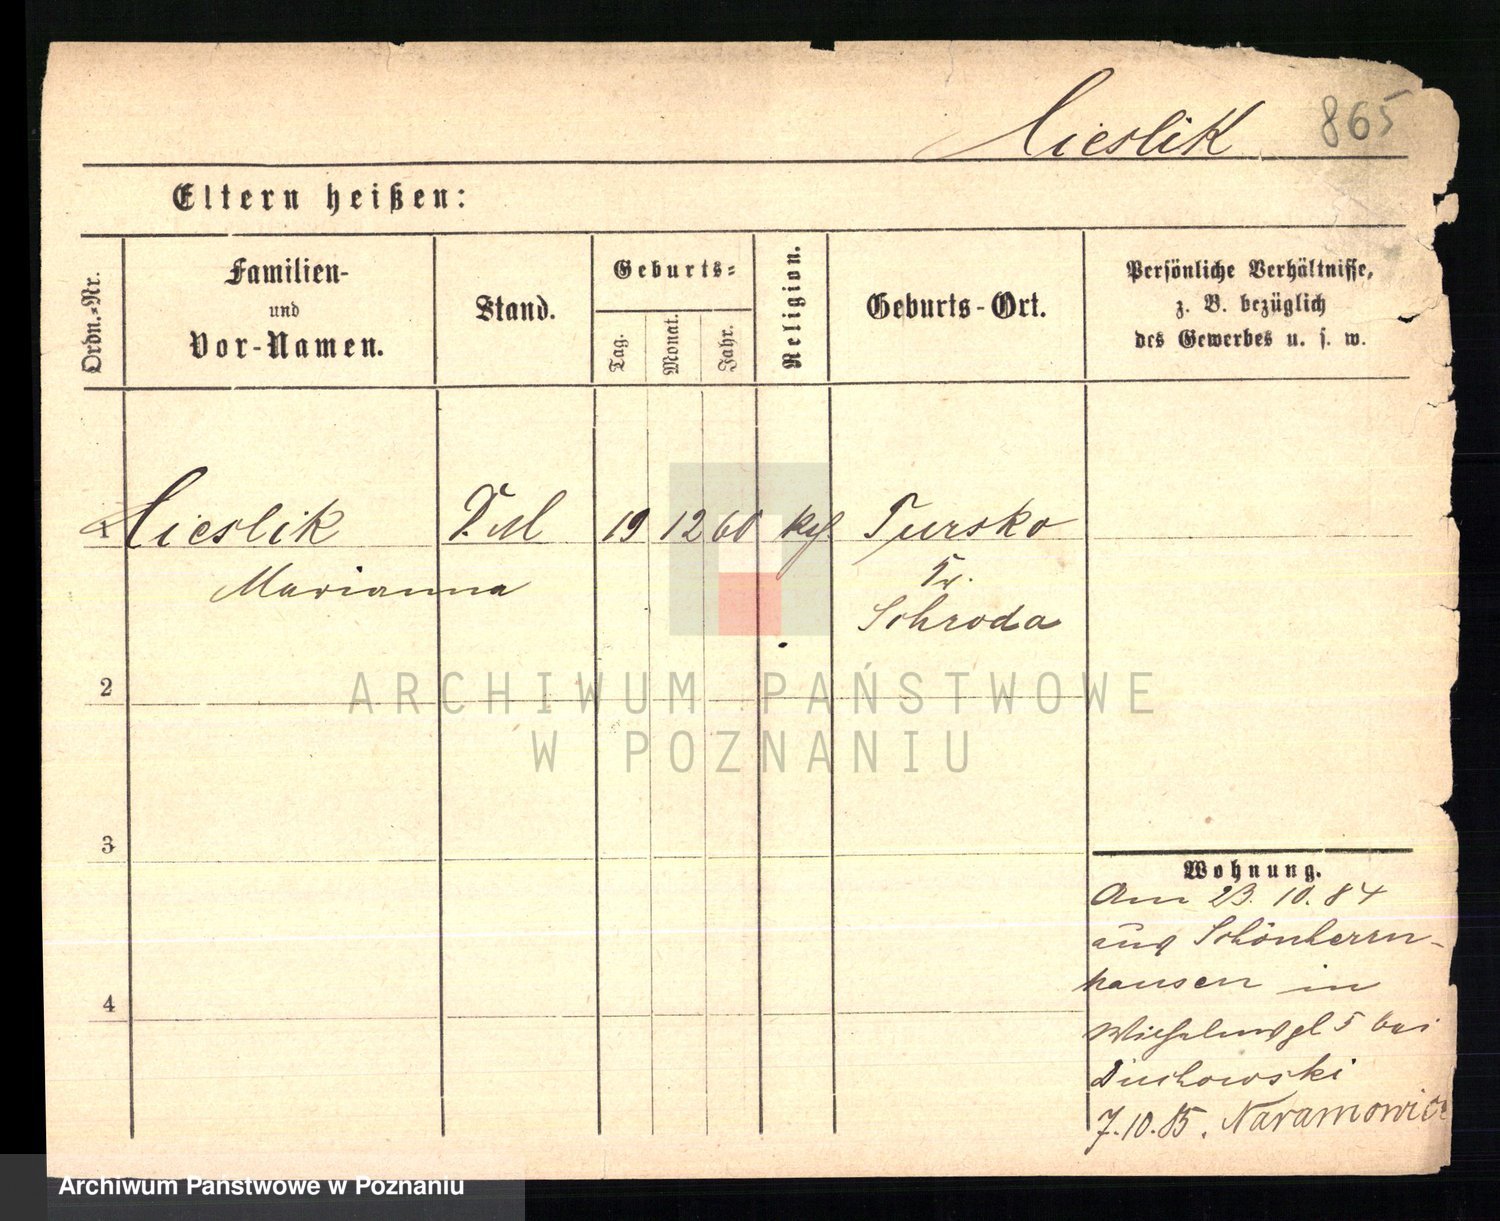 Cieslik 865
Eltern heißen:
Ordn.-Nr.
Familien-
und
Vor-Namen.
Stand.
Geburts-
Tag.
Monat.
Jahr.
Religion.
Geburts-Ort.
Persönliche Verhältnisse,
z. B. bezüglich
des Gewerbes u. s. w.
1 Cieslik D.M 19 12 60 Tursko
Marianna
Kr.
Schroda
2
3
4
Wohnung.
Am 23. 10. 84
aus Schönherrn-
hausen in
Wilhelmspl 5 bei
7.10.85. Naramowice
ARCHIWUM PAŃSTWOWE
W POZNANIU
Archiwum Państwowe w Poznaniu